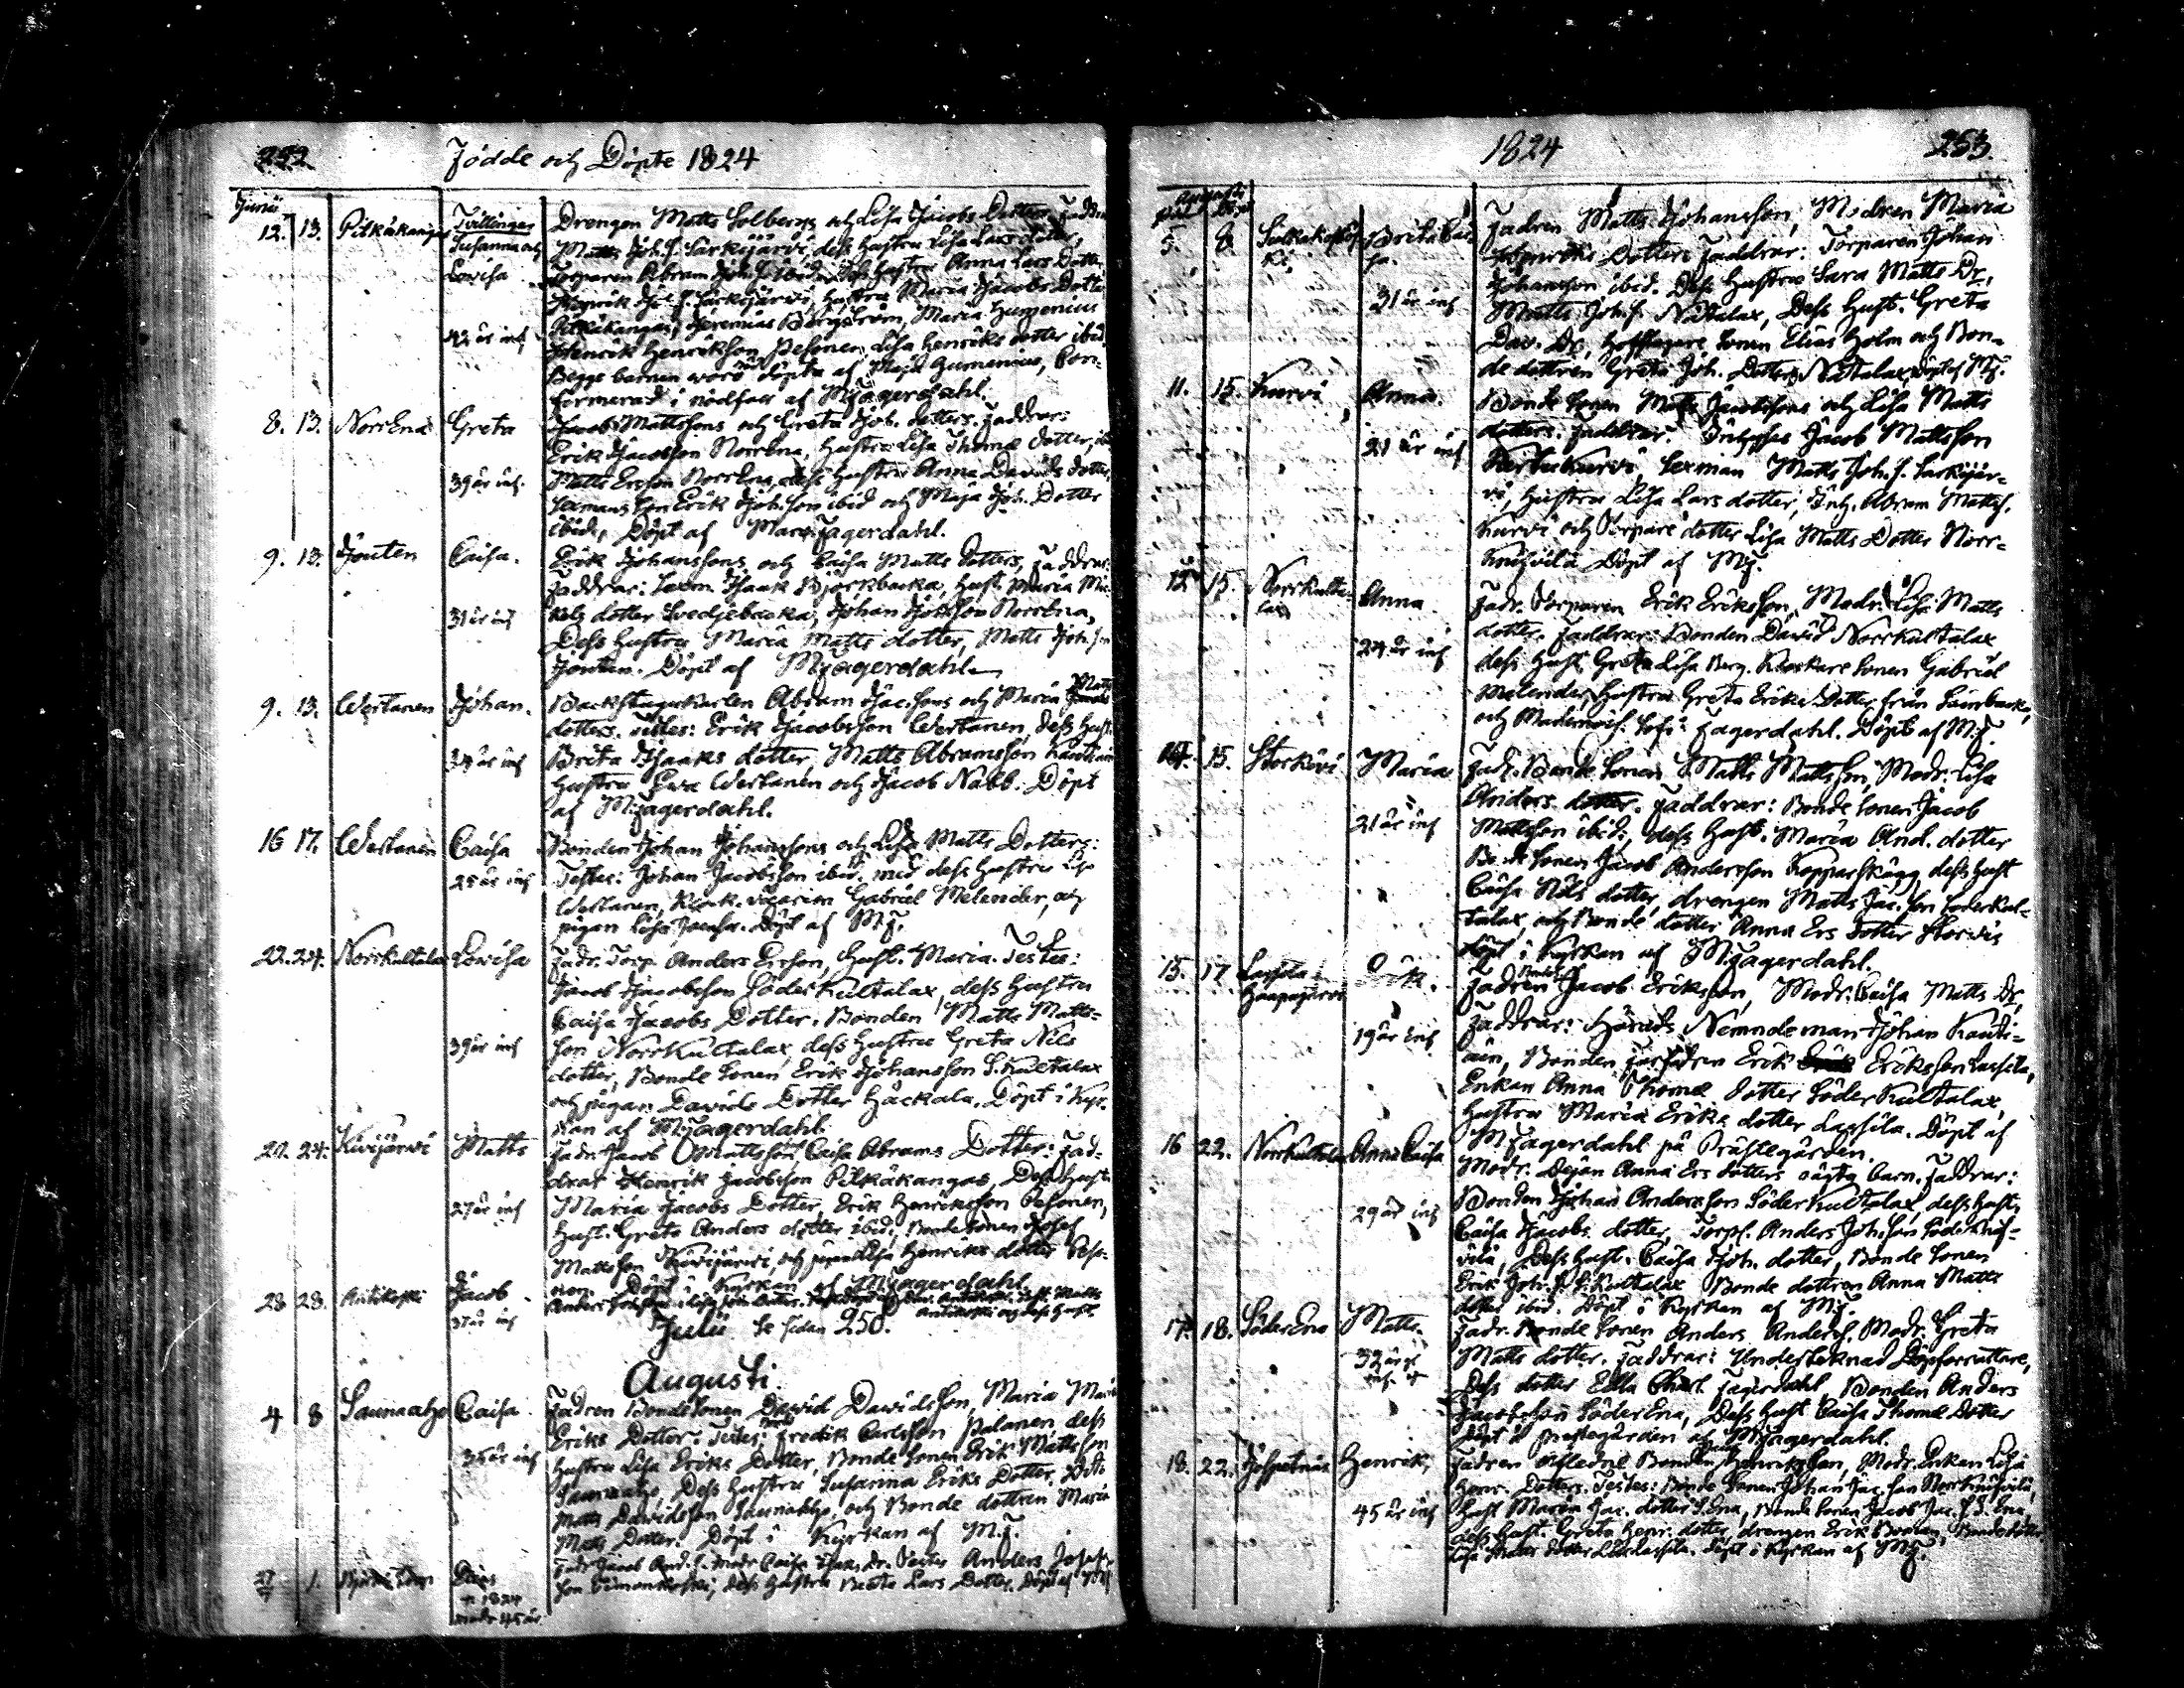 252 Födde och Döpte 1824
Junii
12. 13. Pitkäkangas Tvillingar Drengen Matts Solbergs och Lisa Jacobs Dotter. Faddrar
Susanna och Matts Joh. S. Särkijärvi, dess hustru Lisa Lars dotter,
Lovisa Torparen Abram Joh. S. ibid. dess hustru Anna Lars Dotter
Henrik Särkijärvi, hustru Maria Jacobs Dotter
Pitkäkangas, Jeremias Bergström, Maria Humenius
42 år inf Henrik Henriksson Pesonen, Lisa Henriks dotter ibid.
Begge barnen woro döpta af Maja Humenius, Con-
formerad i nödfall af M. Fagerdahl.
8. 13. NorrEna Greta Jacob Mattssons och Greta Joh. dotters. Faddrar:
Erik Jacobsson NorrEna, hustru Lisa Thomæ dotter,
39 år inf. Matts Ersson NorrEna, dess hustru Anna Davids dotter,
Sexmans son Erik Joh. son ibid och Maja Joh. Dotter
ibid., Döpt af Marc. Fagerdahl.
9. 13. Jouten Caisa. Erik Johanssons och Caisa Matts Dotters, Faddrar:
Faddrar: Sexm. Isaak Björkbacka, Hust. Maria Mi-
31 år inf kels dotter Svedjebacka, Johan Johsson NorrEna,
Dess hustru Maria Matts dotter, Matts Joh. son
Jouten. Döpt af M. Fagerdahl
9. 13. Wertanen Johan. Backstugukarlen Abram Jacssons och Maria Matts
dotters. Testes: Erik Jacobsson Wertanen, dess hust.
34 år inf Brita Isaaks dotter, Matts Abramsson
Hustru Ewa Wertanen och Jacob Nabb. Döpt
af M. Fagerdahl.
16 17. Westanen Caisa Bonden Johan Johanssons och Lisa Matts Dotters:
25 år inf Testes: Johan Jacobsson ibid. med dess hustru Lisa
Westanen, Klock. vicarien Gabriel Melender, och
pigan Lisa. Döpt af M.F.
22. 24. Norrkultalax Lovisa Fadr. Torp. Anders Ersson, Hust. Maria. Testes:
Jacob Jacobsson Söderkultalax, dess hustru
Caisa Jacobs Dotter. Bonden Matts Matts-
39 år inf son Norrkultalax, dess hustru Greta Nils
dotter, Bonde Sonen Erik Johansson S. Kultalax
och pigan Davids Dotter Häckala. Döpt i Kyr-
kan af M. Fagerdahl.
20. 24. Kivijärvi Matts Fadr. Jacob Mattsson Caisa Abrams Dotter: Fad-
drar Henrik Jacobsson Pitkäkangas, Dess hust.
27 år inf Maria Jacobs Dotter, Erik Henriksson Pesonen,
Hust. Greta Anders dotter ibid, Bonde Sonen Josef
Mattsson Kivijärvi, och pigan Lisa Henriks dotter Peso-
nen. Döpt i Kyrkan af M. Fagerdahl
28 28. Antikoski Jacob
37 år inf Antikoski och dess hust.
Julii Se sidan 250.
Augusti
4 8 Saunaaho Caisa Fadren Bonde Sonen David Davidsson, Maria
Eriks Dotter: Testes: Fredrik Carlsson Palanen, dess
35 år inf hustru Lisa Eriks Dotter, Bonde Sonen Erik Mattsson
Saunaaho, Dess hustru Susanna Eriks Dotter.
Matts Davidsson Saunaaho, och Bonde dottren Maria
Matts Dotter. Döpt i Kyrkan af M.F.
1. Fadr. Jacob And. S. Modr. Caisa Isaks Dr. Testes Anders Josefs-
son Simonkoski, dess hustru Beata Lars Dotter. Döpt af M.F.
1824
modr 45 år
1824 253.
Augusti
5. 8 Brita Cai-
sa. Fadren Matts Johansson, Modren Maria
Henriks Dotters Faddrar: Torparen Johan
31 år inf Johansson ibid. Dess hustru Sara Matts Dr,
Matts Joh. S. Nätalax, Dess Hust. Greta
Dav. Dr, Hofslagare Sonen Elias Holm och Bon-
de dottren Greta Joh. Dotter Nätalax, Döpt af M.F.
11. 15. Kurvi Anna. Bonde Sonen Matts Jacobssons och Lisa Matts
dotters. Faddrar: Inhyses Jacob Mattsson
21 år inf Kurvi, Sexman Matts Joh. S. Särkijär-
vi, Hustru Lisa Lars dotter, Inh. Abram Mattss.
Kurvi och Torpare dotter Lisa Matts Dotter Norr-
Knihvilä Döpt af M.F.
12 15. Norrkulta-
lax Anna Fadr. Torparen Erik Eriksson, Modr. Lisa Matts
dotter. Faddrar: Bonden David Norrkultalax
24 år inf dess hust. Greta Lisa Berg. Klockare Sonen Gabriel
Melender, Hustru Greta Eriks Dotter från Sainbacka,
och Mademois. Sofi Fagerdahl. Döpt af M.F.
14. 15. Storkivi Maria Fadr. Bonde Sonen Matts Mattsson, Modr. Lisa
Anders dotter. Faddrar: Bonde Sonen Jacob
21 år inf Mattsson ibid., dess Hust. Maria And. dotter
Bonde Sonen Jacob Andersson Kopparskägg, dess Hust
Caisa Nils dotter, drengen Matts Jac. Son Söderkul-
talax, och Bonde dotter Anna Ers Dotter Storkivi
döpt i Kyrkan af M. Fagerdahl.
15. 17 Lassila
Haapajärvi Erik. Fadren Jacob Eriksson, Modr: Caisa Matts Dr,
19 år inf Faddrar: Härads Nemndeman Johan Kauti-
ain, Bonden Farfadren Erik Eriksson Lassila,
Enkan Anna Thomæ dotter Söder Kultalax,
Hustru Maria Eriks dotter Lassila. Döpt af
M. Fagerdahl på Prästegården.
16 22. Norrkultalax Anna Caisa Modr. Dejan Anna Ers dotters oägta barn. Faddrar:
Bonden Johan Andersson Söder Kultalax, dess Hust.
29 år inf Caisa Jacobs dotter, Torp. Anders Joh. son
Dess Hust. Caisa Joh. dotter, Bonde Sonen
Erik Joh. S. S. Kultalax Bonde dottren Anna Matts
dotter ibid. Döpt i Kyrkan af M.F.
17. 18. SöderEna Matts. Fadr. Bonde Sonen Anders Anderss. Modr. Greta
32 år Matts dotter. Faddrar: Undertecknad Döpförrättare,
Dess dotter Edla Charl. Fagerdahl, Bonden Anders
Jacobsson SöderEna, Dess hust. Caisa Thomæ Dotter
Döpt i prestegården af M. Fagerdahl.
18. 22. Henrik, Fadren Afledne Bonden Henriksson, Modr. Enkan Lisa
Henr. Dotters. Testes: Bonde Sonen Johan Jac. son NorrKnihvilä,
45 år inf Hust Maria Jac. dotter S.Ena, Bonde Sonen Jacob Jac. S. S. Ena,
dess hust. Greta Henr. dotter, drengen Erik Boman, Bonde dotter
Lisa dotter Lassila. Döpt i Kyrkan af M.F.